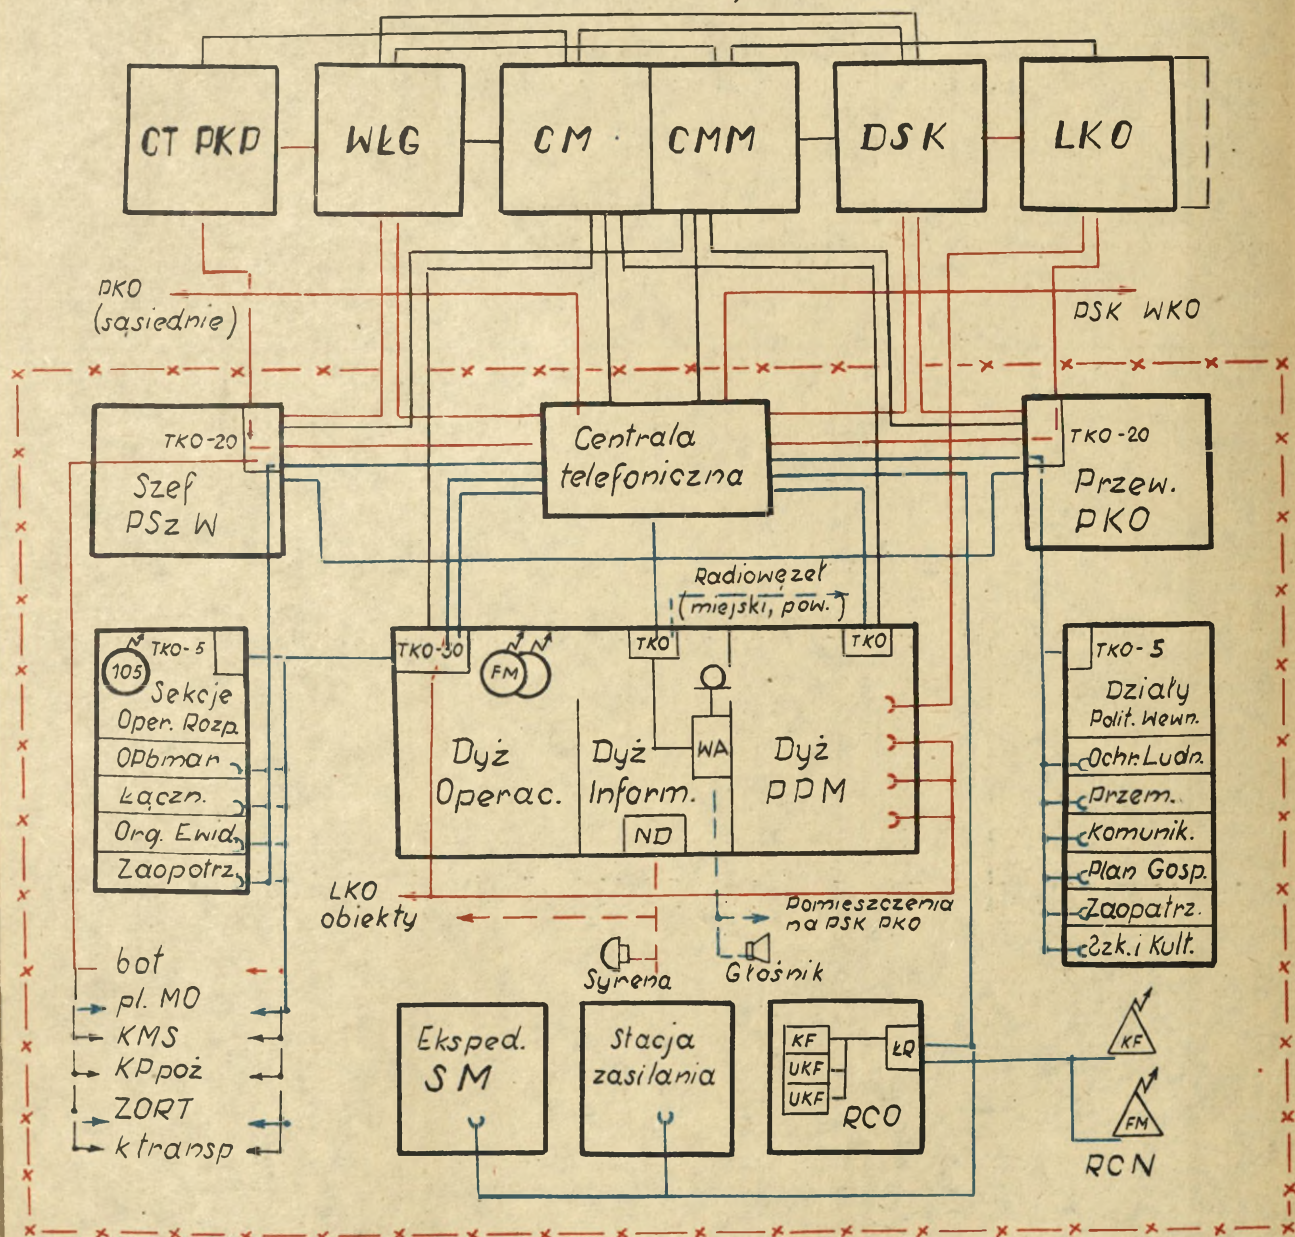 CT PKP
WŁG
CM
CMM
DSK
LKO
PKO
(sąsiednie)
PSK WKO
TKO-20
Szef
PSz W
Centrala
telefoniczna
TKO-20
Przew.
PKO
Radiowęzeł
(miejski, pow.)
105
TKO-5
Sekcje
Oper. Rozp.
OPbmar
Łączn.
Org. Ewid.
Zaopotrz.
TKO-30
FM
TKO
TKO
Dyż
Operac.
Dyż
Inform.
WA
Dyż
PPM
ND
TKO-5
Działy
Polit. Wewn.
Ochr. Ludn.
Przem.
Komunik.
Plan Gosp.
Zaopatrz.
Szk. i Kult.
LKO
obiekty
Pomieszczenia
na PSK PKO
Syrena
Głośnik
bot
pl. MO
KMS
KPpoż
ZORT
k transp
Eksped.
SM
Stacja
zasilania
KF
UKF
UKF
ŁQ
RCO
KF
FM
RCN